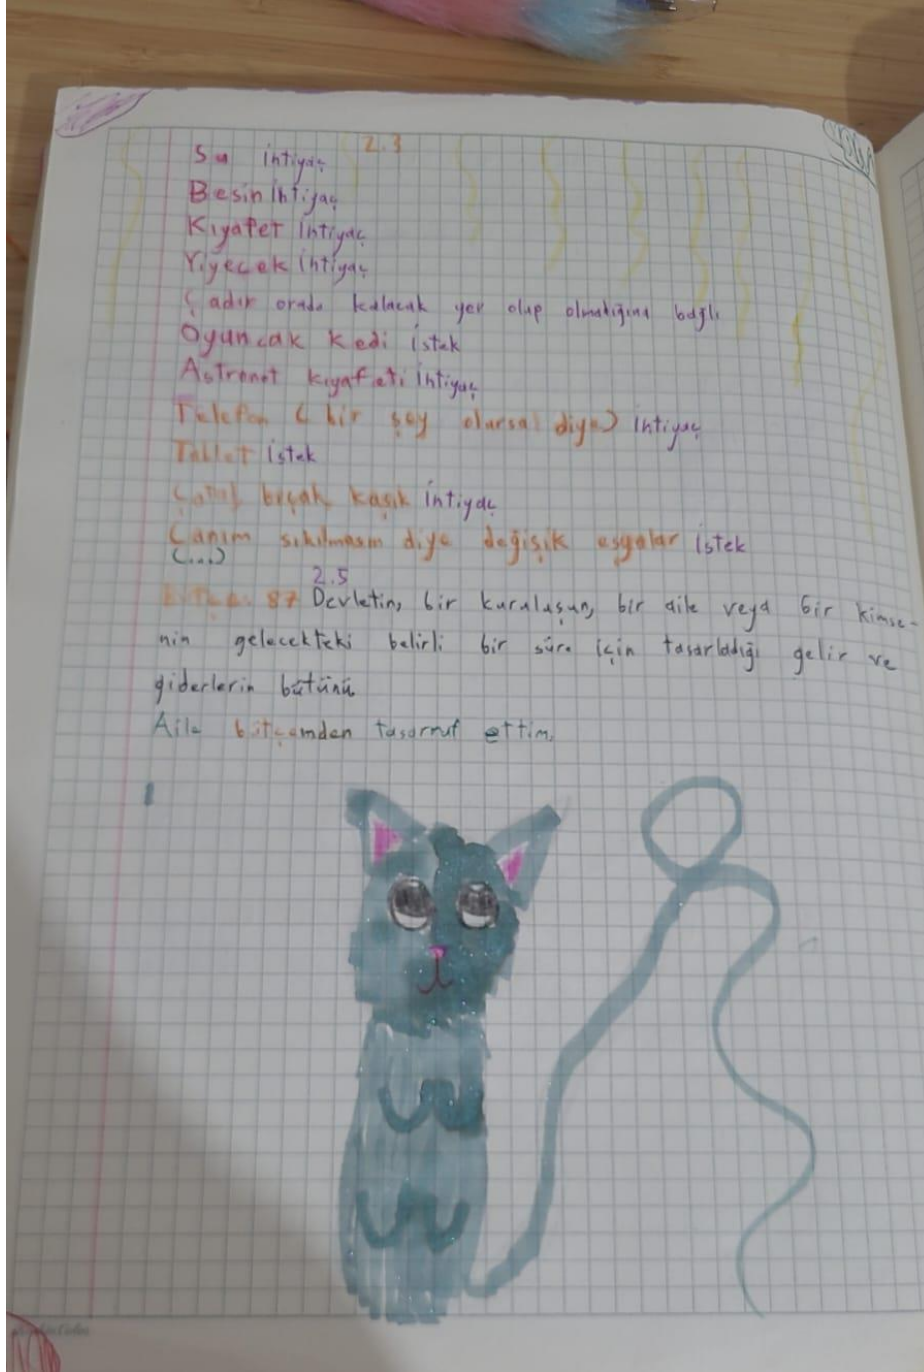 2.3
Su ihtiyaç
Besin ihtiyaç
Kıyafet ihtiyaç
Yiyecek ihtiyaç
Çadır orada kalacak yer olup olmadığına bağlı
Oyuncak kedi istek
Astronot kıyafeti ihtiyaç
Telefon (bir şey olursa diye) ihtiyaç
Tablet istek
Çatal bıçak kaşık ihtiyaç
Canım sıkılmasın diye değişik eşyalar istek
(...)
2.5
87 Devletin, bir kuruluşun, bir aile veya bir kimse-
nin gelecekteki belirli bir süre için tasarladığı gelir ve
giderlerin bütünü
Aile bütçemden tasarruf ettim.